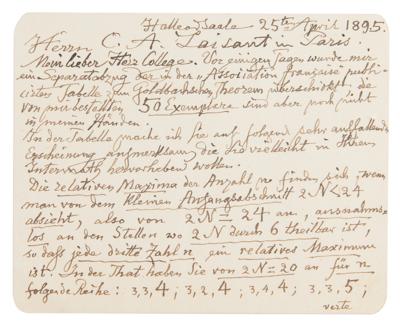 Halle a Saale 25ten April 1895.
Herrn C. A. Laisant in Paris.
Mein lieber Herr College. Vor einigen Tagen wurde mir
ein Separatabzug der in der „Association française publi-
cirten Tabelle zum Goldbachschen Theorem überschickt; die
von mir bestellten 50 Exemplare sind aber noch nicht
in meinen Händen.
In der Tabelle mache ich Sie auf folgende sehr auffallende
Erscheinung aufmerksam, die Sie vielleicht in Ihrem
hervorheben wollen.
Die relativen Maxima der Anzahl ν finden sich, wenn
man von dem kleinen Anfangsabschnitt 2N<24
absieht, also von 2N = 24 an, ausnahms-
los an den Stellen wo 2N durch 6 theilbar ist,
so daß jede dritte Zahl n ein relatives Maximum
ist. In der That haben Sie von 2N=20 an für n
folgende Reihe: 3,3,4; 3,2,4; 3,4,4; 3,3,5;
verte